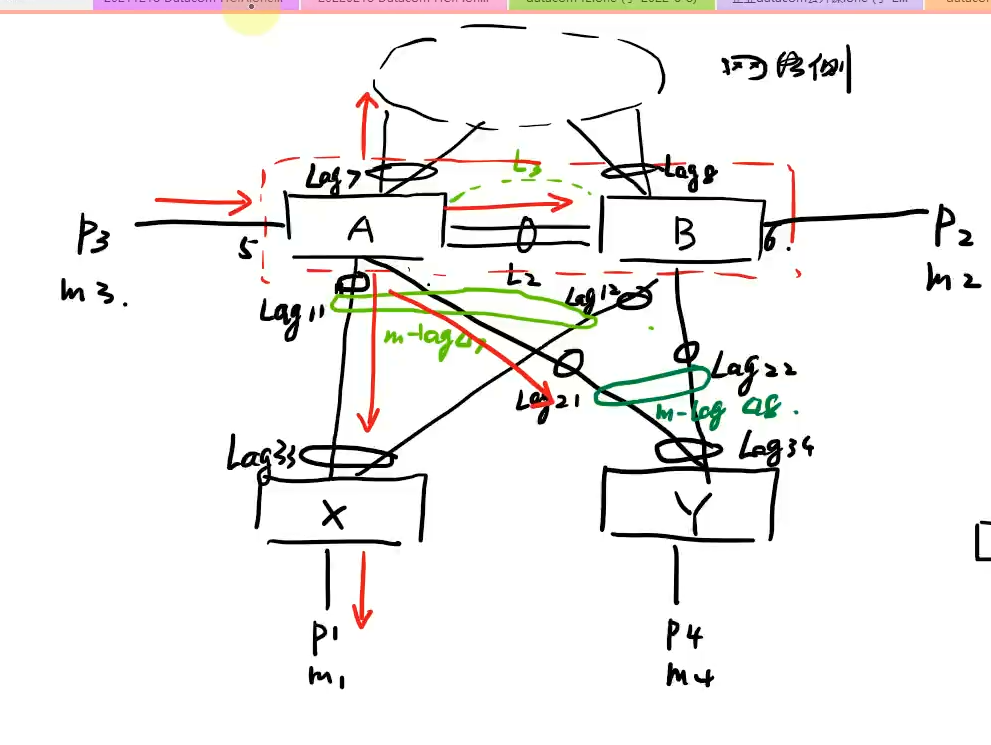 网络侧
Lag7
L3
Lag8
P3
m3.
5
A
B
6.
P2
m2
L2
Lag11
Lag12
m-lag
Lag21
Lag22
m-lag
Lag33
Lag34
X
Y
P1
m1
P4
m4